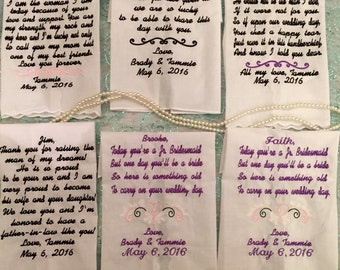 I am the woman I am
today because of your
love and support. You are
my strength, my rock and
and I'm lucky not only
to call you my mum but
one of my best friends.
Love you forever,
Tammie
May 6, 2016
to be able to share this
day with you.
Love,
Brady & Tammie
May 6, 2016
if it were not for you.
So if upon our wedding day,
You shed a happy tear
Just know it in this handkerchief,
And know I hold you dear.
All my love, Tammie
May 6, 2016
Jim,
Thank you for raising the
man of my dreams!
He is so proud
to be your son and I am
every proud to become
his wife and your daughter!
We love you and I'm
honored to have a
father-in-law like you!
Love, Tammie
May 6, 2016
Brooke,
Today you're a Jr. Bridesmaid
But one day you'll be a bride
So here is something old
To carry on your wedding day.
Love,
Brady & Tammie
May 6, 2016
Faith,
Today you're a Jr. Bridesmaid
But one day you'll be a bride
So here is something old
To carry on your wedding day.
Love,
Brady & Tammie
May 6, 2016